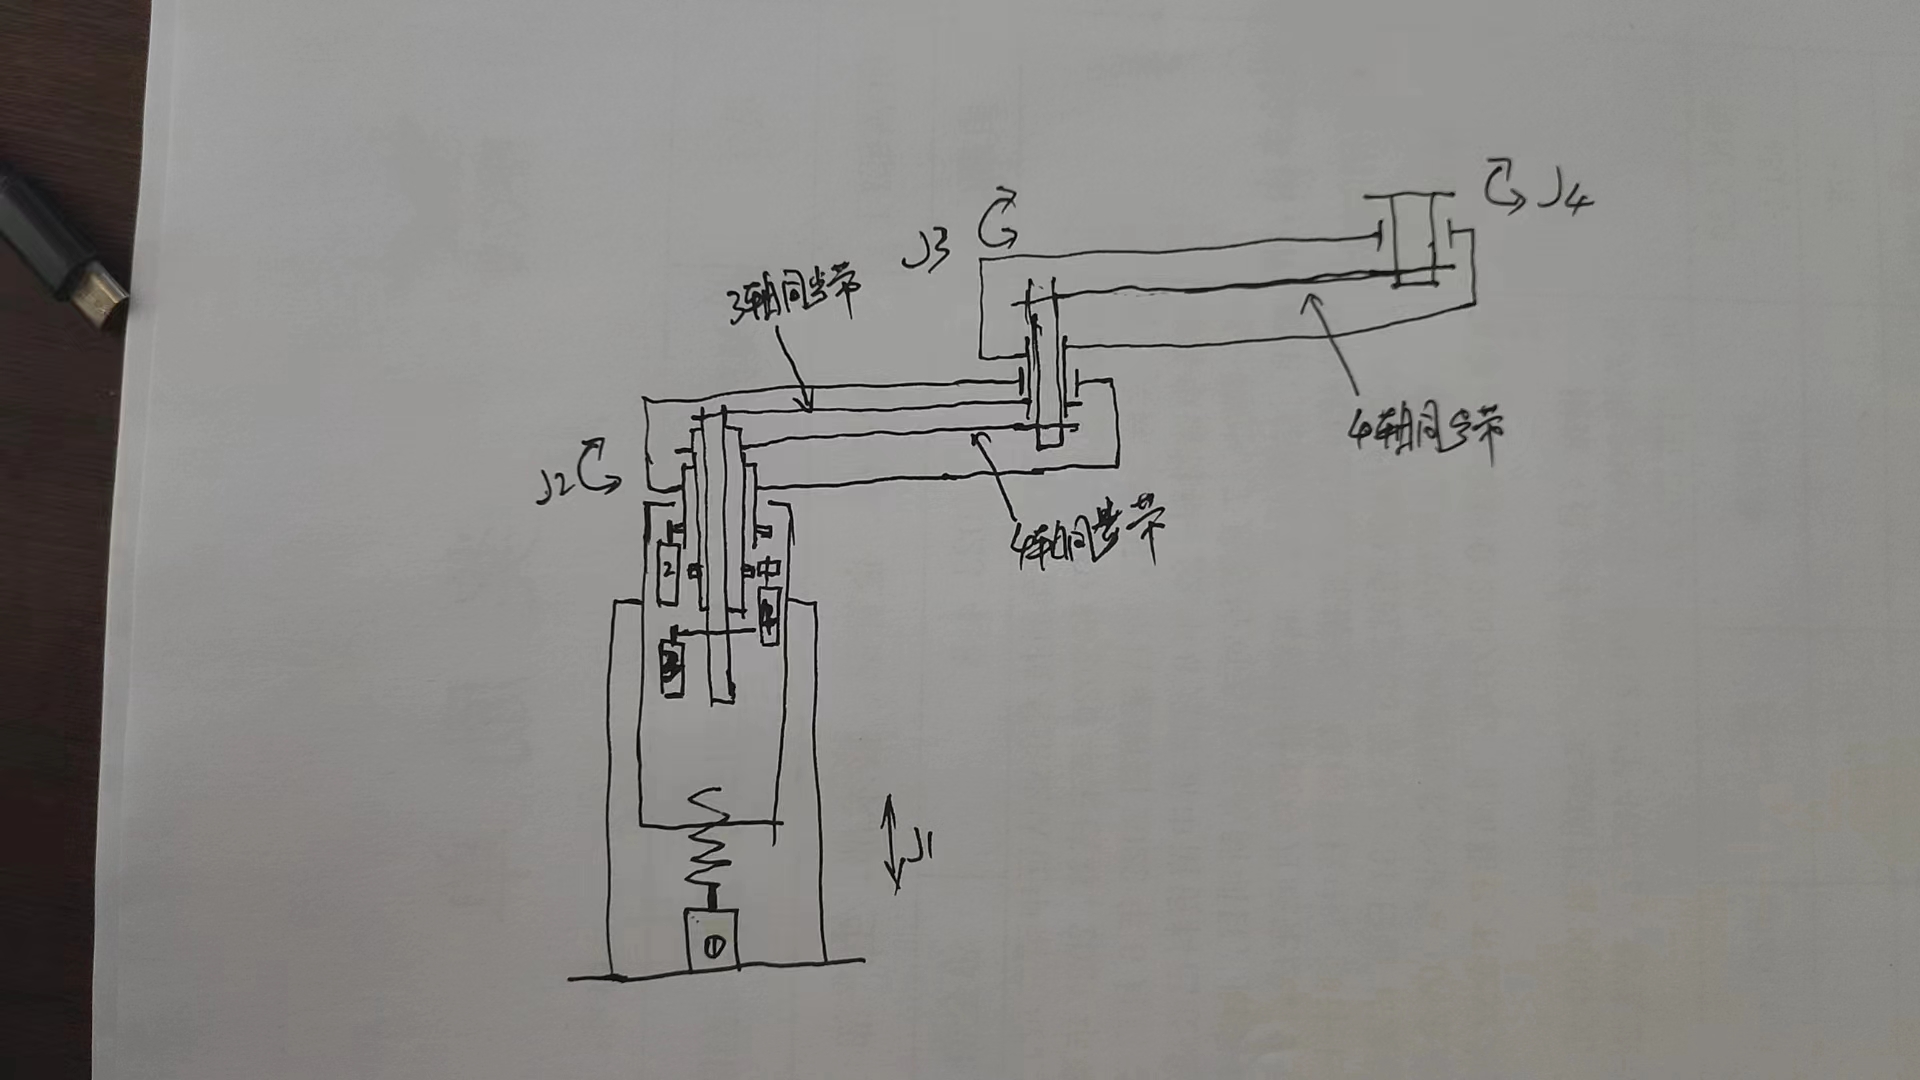 J4
J3
3轴同步带
4轴同步带
J2
4轴同步带
2
4
3
J1
①